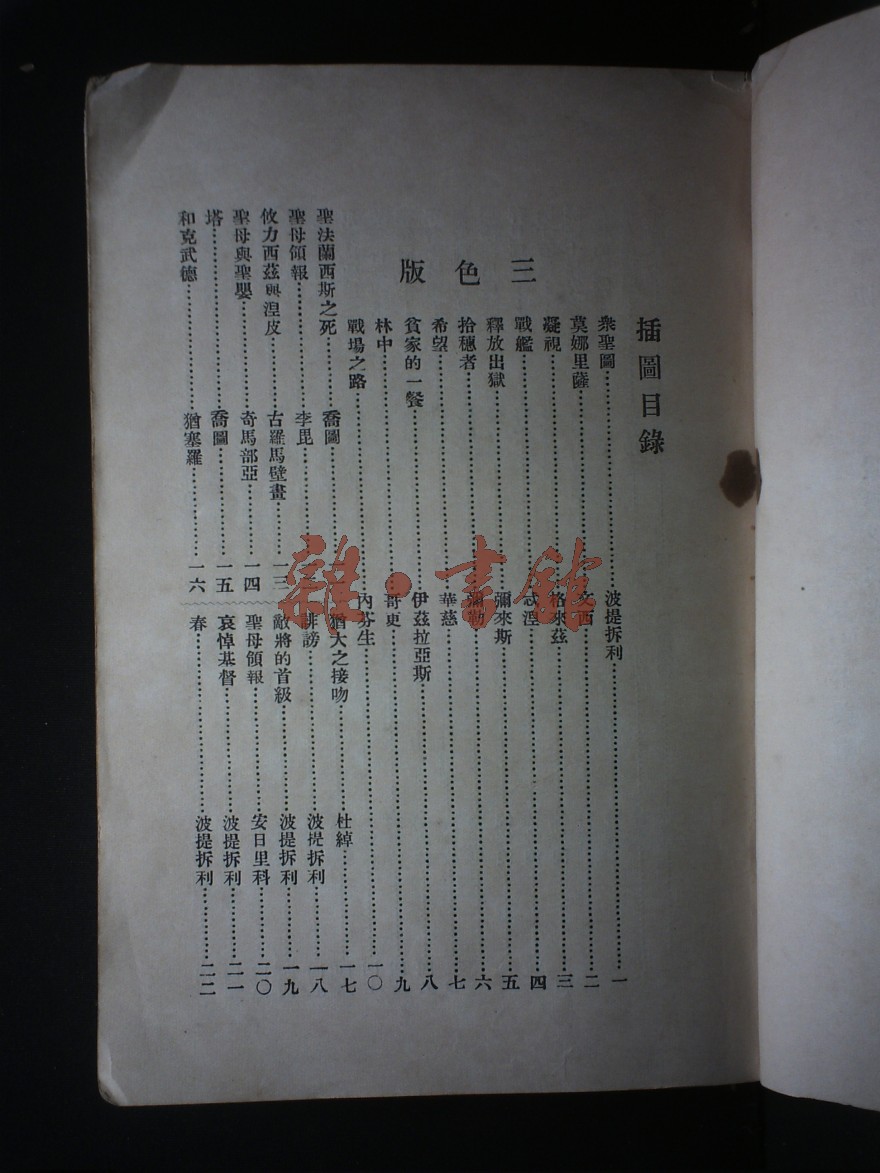 插圖目錄
三色版
衆聖圖……波提拆利……一
莫娜里薩……文西……二
凝視……格來茲……三
戰艦……忒涅……四
釋放出獄……彌來斯……五
拾穗者……彌勒……六
希望……華慈……七
貧家的一餐……伊茲拉亞斯……八
林中……哥……九
戰場之路……內芬生……一〇
聖法蘭西斯之死……喬圖……
聖母領報……李毘……
攸力西茲與涅皮……古羅馬壁畫……一三
聖母與聖嬰……奇馬部亞……一四
塔……喬圖……一五
和克武德……猶塞羅……一六
猶大之接吻……杜綽……一七
誹謗……波提拆利……一八
敵將的首級……波提拆利……一九
聖母領報……安日里科……二〇
哀悼基督……波提拆利……二一
春……波提拆利……二二
雜·書館